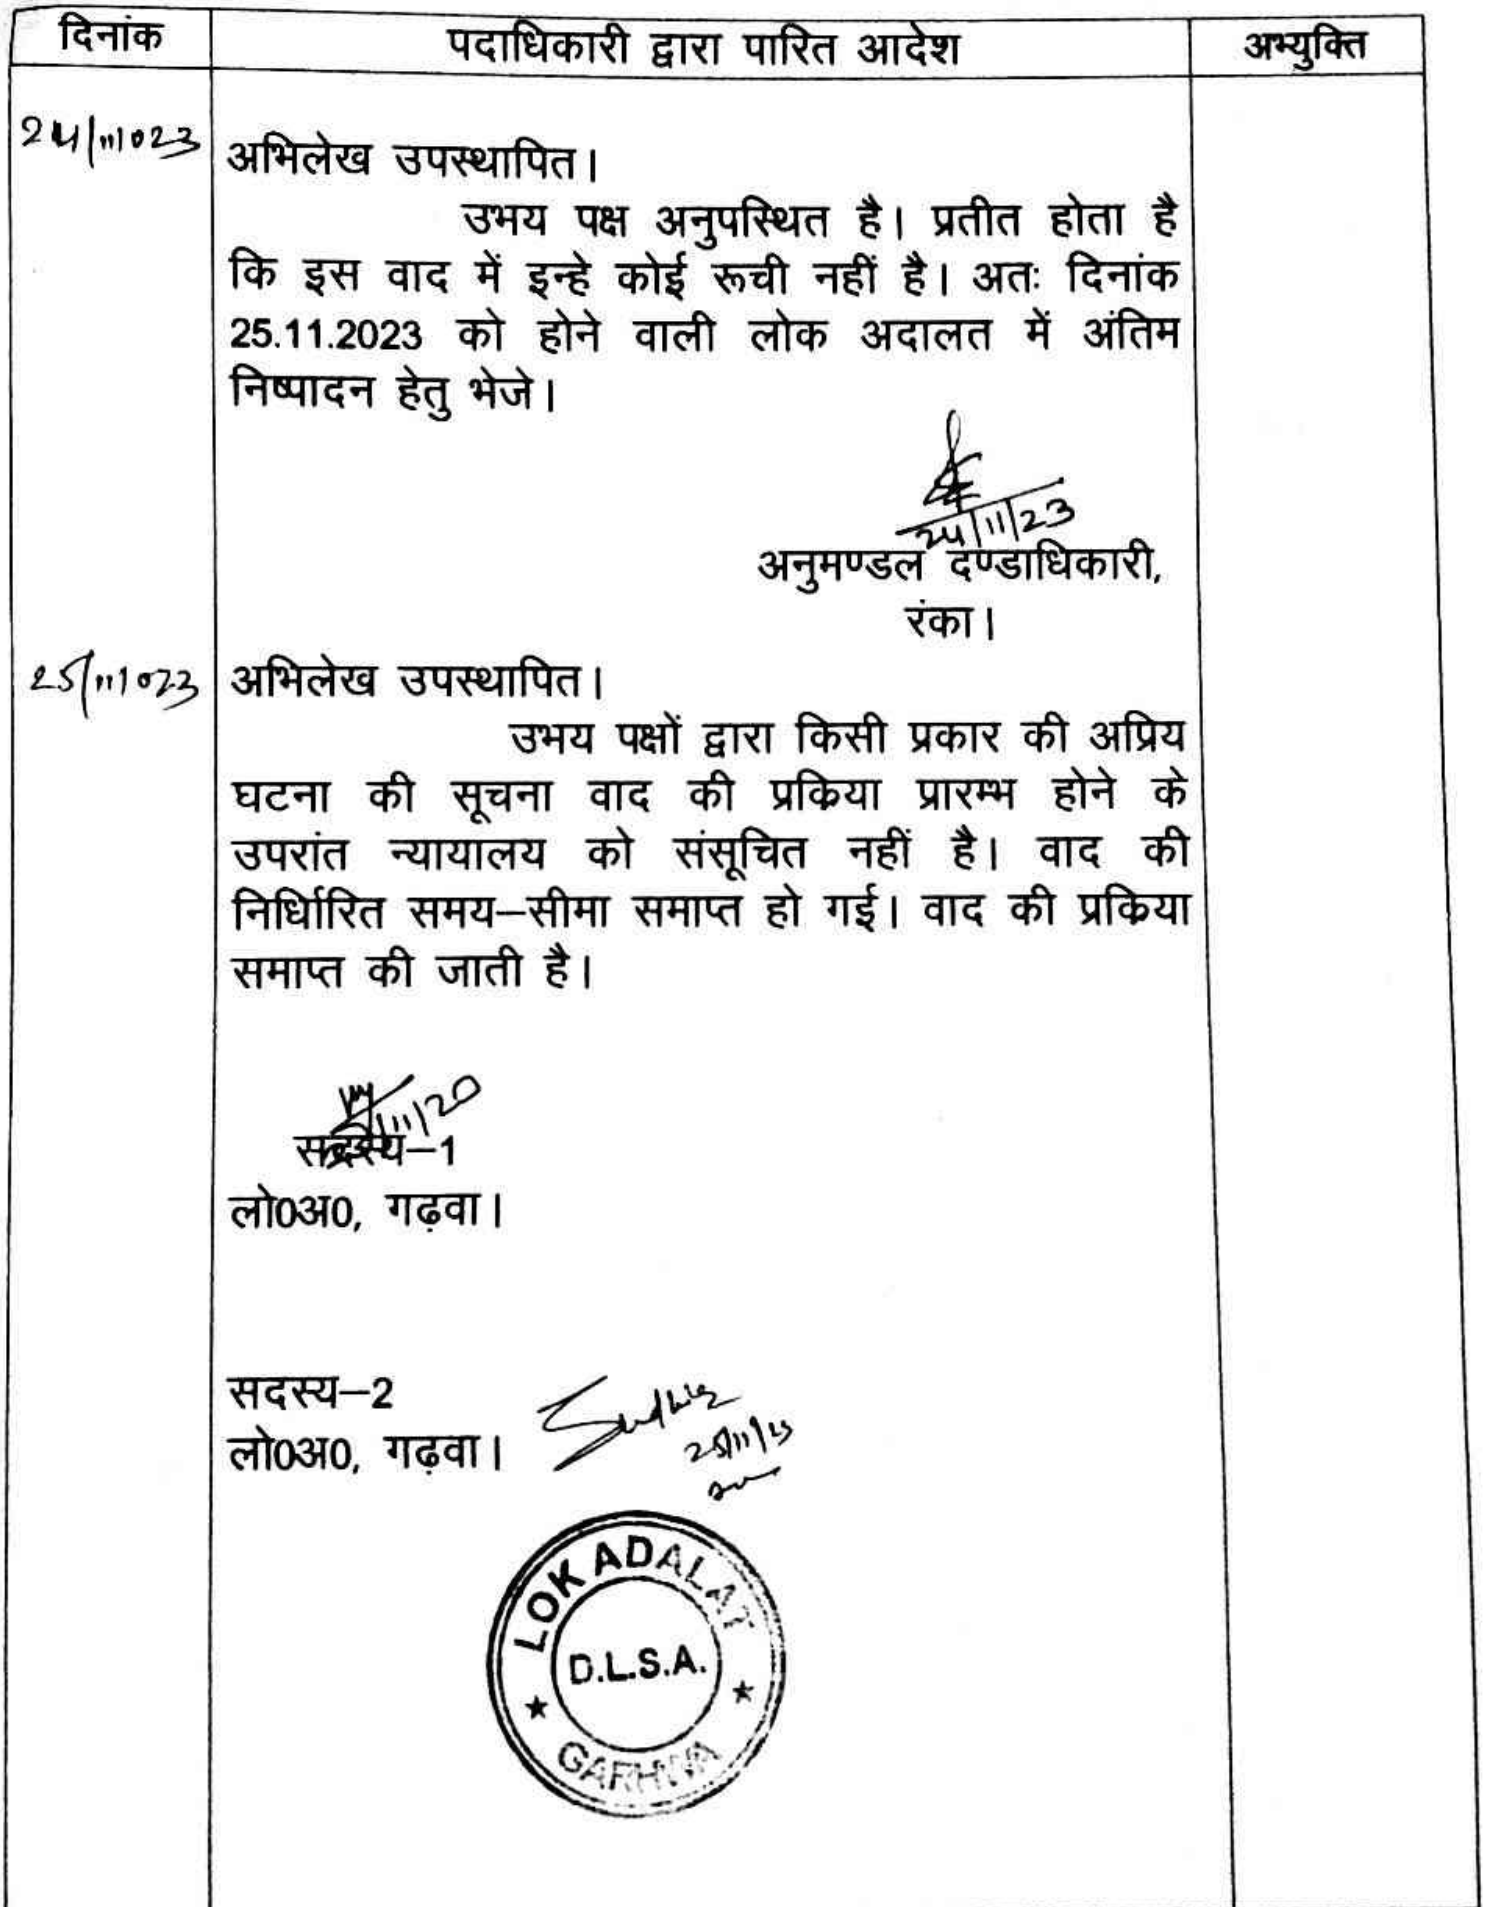 दिनांक पदाधिकारी द्वारा पारित आदेश अभ्युक्ति
24/11/023
अभिलेख उपस्थापित।
उभय पक्ष अनुपस्थित है। प्रतीत होता है
कि इस वाद में इन्हे कोई रूची नहीं है। अतः दिनांक
25.11.2023 को होने वाली लोक अदालत में अंतिम
निष्पादन हेतु भेजे।
24/11/23
अनुमण्डल दण्डाधिकारी,
रंका।
25/11/023 अभिलेख उपस्थापित।
उभय पक्षों द्वारा किसी प्रकार की अप्रिय
घटना की सूचना वाद की प्रकिया प्रारम्भ होने के
उपरांत न्यायालय को संसूचित नहीं है। वाद की
निर्धिारित समय–सीमा समाप्त हो गई। वाद की प्रकिया
समाप्त की जाती है।
सदस्य–1
लो0अ0, गढ़वा।
सदस्य–2
लो0अ0, गढ़वा।
25/11/23
LOK ADALAT
D.L.S.A.
★ ★
GARHWA